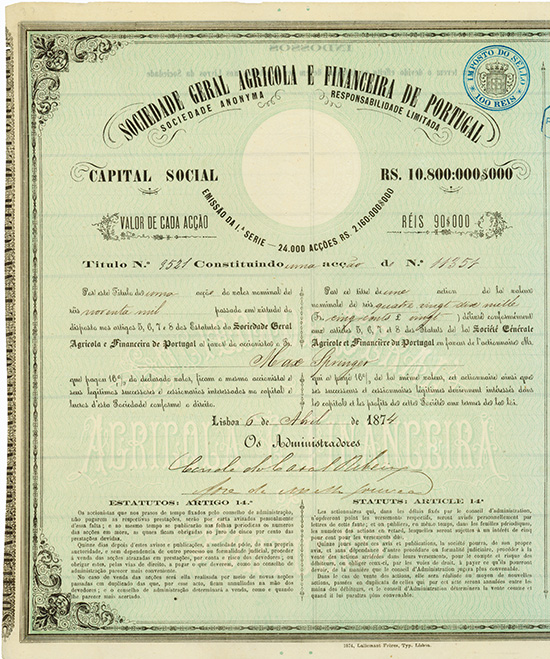 SOCIEDADE GERAL AGRICOLA E FINANCEIRA DE PORTUGAL
SOCIEDADE ANONYMA
RESPONSABILIDADE LIMITADA
IMPOSTO DO SELLO
100 REIS
CAPITAL SOCIAL
RS. 10.800:000$000
EMISSÃO DA 1.ª SERIE – 24.000 ACÇÕES RS. 2.160:000$000
VALOR DE CADA ACÇÃO
RÉIS 90$000
Titulo N.º 9521 Constituindo uma acção de N.º 11351
Por este Titulo de uma acção do valor nominal de
réis noventa mil passado em virtude do
disposto nos artigos 5, 6, 7 e 8 dos Estatutos da Sociedade Geral
Agricola e Financeira de Portugal a favor do accionista o Sr.
Par ce titre de une action de la valeur
nominale de réis quatre vingt dix mille
(Fr. cinquante £ vingt) délivré conformément
aux articles 5, 6, 7 et 8 des Statuts de la Société Générale
Agricole et Financière du Portugal en faveur de l'actionnaire Mr.
Max Springer
que pagou 10% do declarado valor, ficam o mesmo accionista e
seus legitimos successores e cessionarios interessados no capital e
lucros d'esta Sociedade conforme o direito.
qui a payé 10% de la même valeur, cet actionnaire ainsi que
ses successeurs et cessionnaires légitimes deviennent intéressés dans
le capital et les profits de cette Société aux termes de la loi.
Lisboa 6 de Abril de 1874
Os Administradores
AGRICOLA E FINANCEIRA
Conde do Casal Ribeiro
ESTATUTOS: ARTIGO 14.º
Os accionistas que nos prasos de tempo fixados pelo conselho de administração,
não pagarem as respectivas prestações, serão por carta avisados pessoalmente
d'essa falta; e ao mesmo tempo se publicarão nas folhas periodicas os numeros
das acções em móra, os quaes ficam obrigados ao juro de cinco por cento das
prestações devidas.
Quinze dias depois d'estes avisos e publicações, a sociedade póde, de sua propria
auctoridade, e sem dependencia de outro processo ou formalidade judicial, proceder
á venda das acções atrazadas em prestações, por conta e risco dos devedores; ou
obrigar estes, pelas vias de direito, a pagar o que deverem, como ao conselho de
administração parecer mais conveniente.
No caso de venda das acções será ella realisada por meio de novas acções
passadas em duplicado das que, por esse acto, ficam annulladas na mão dos
devedores; e o conselho de administração determinará a venda, como e quando
lhe parecer mais acertado.
STATUTS: ARTICLE 14e
Les actionnaires qui, dans les délais fixés par le conseil d'administration,
n'opéreront point les versements respectifs, seront avisés personnellement par
lettres de cette faute; et on publiera, en même temps, dans les feuilles périodiques,
les numéros des actions en retard, lesquelles seront sujettes à un intérêt de cinq
pour cent pour les versements dûs.
Quinze jours après ces avis et publications, la société pourra, de son propre
avis, et sans dépendance d'autre procédure ou formalité judiciaire, procéder à la
vente des actions arriérées dans leurs versements, pour le compte et risque des
débiteurs, ou obliger ceux-ci, par les voies de droit, à payer ce qu'ils pourront
devoir, de la manière que le conseil d'Administration jugera plus convenable.
Dans le cas de vente des actions, elle sera réalisée au moyen de nouvelles
actions, passées en duplicata de celles qui par cet acte seront annulées entre les
mains des débiteurs, et le conseil d'Administration déterminera la vente comme et
quand il lui paraîtra plus convenable.
1874, Lallemant Frères, Typ. Lisboa.